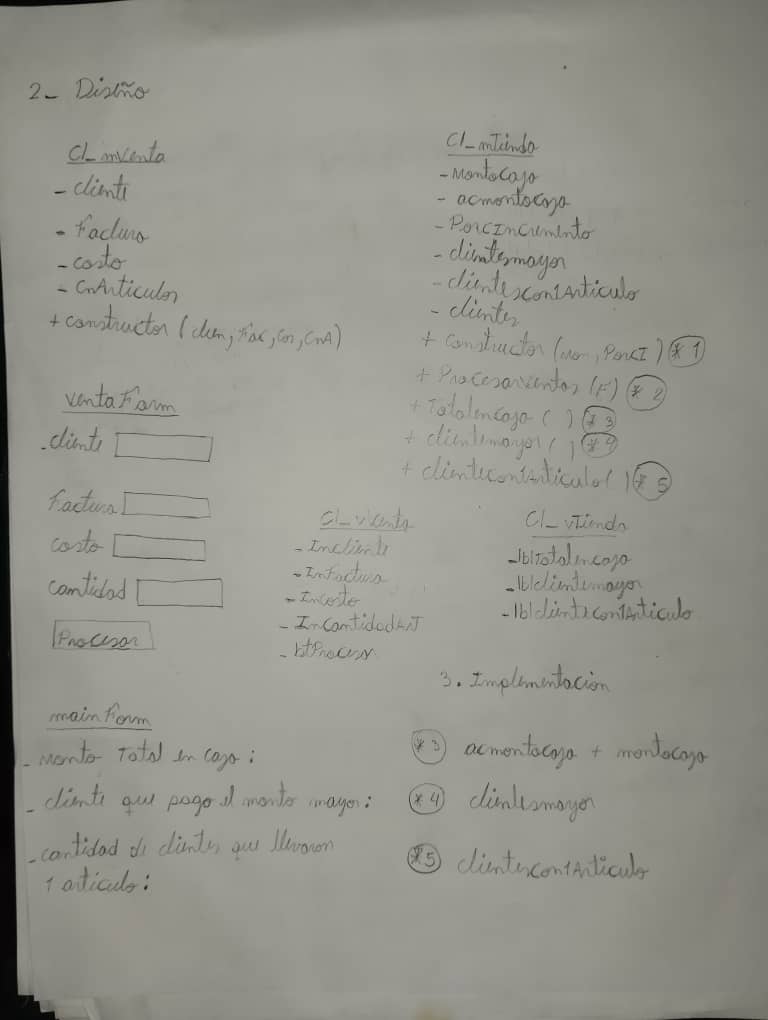 2- Diseño
Cl_mVenta
- cliente
- Factura
- costo
- CnArticulos
+ constructor (clien, Fac, Cos, CnA)
Cl_mTienda
- MontoCaja
- acmontocaja
- PorcIncremento
- clientemayor
- clientescon1Articulo
- clientes
+ Constructor (Mon, PorcI) *1
+ Procesarventas (F) *2
+ Totalencaja ( ) *3
+ clientemayor ( ) *4
+ clientecon1Articulo ( ) *5
ventaForm
- cliente
Factura
costo
cantidad
Procesar
Cl_vVenta
- Incliente
- InFactura
- Incosto
- IncantidadArt
- btProcesar
Cl_vTienda
- lblTotalencaja
- lblclientemayor
- lblclientecon1Articulo
mainForm
- Monto Total en caja:
- cliente que pago el monto mayor:
- cantidad de clientes que llevaron
1 articulo:
3. Implementación
*3 acmontocaja + montocaja
*4 clientemayor
*5 clientescon1Articulo